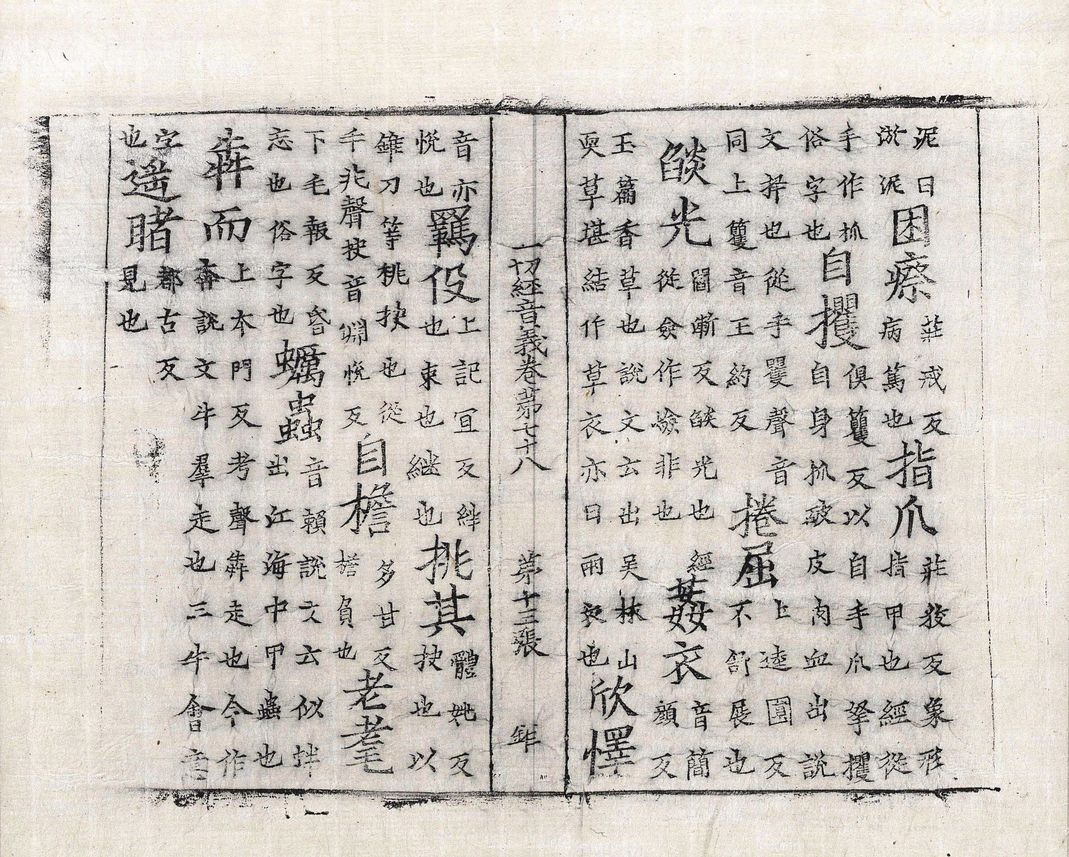 泥曰淤泥困瘵莊戒反病篤也指爪莊狡反象形指甲也經從
手作抓俗字也自攫俱籰反以自手爪拏攫自身抓破皮肉血出說
文抙也從手矍聲音同上籰音王約反捲屈上逵圓反不舒展也
燄光閻漸反燄光也經從僉作㷿非也葌衣音簡顏反
玉篇香草也說文云出吳林山耎草堪結作草衣亦曰雨衣也欣懌
一切經音義卷第七十八 第十三張 鉅
音亦悅也羈伇上記冝反絆也束也継也挑其體姚反抉也以
錐刀等挑抉也從手兆聲抉音淵悅反自檐多甘反檐負也老耄
下毛報反昏忘也俗字也蠣蟲音賴說文云似蜯出江海中甲蟲也
犇而上本門反考聲犇走也今作奔說文牛羣走也三牛會意
字也遥睹都古反見也